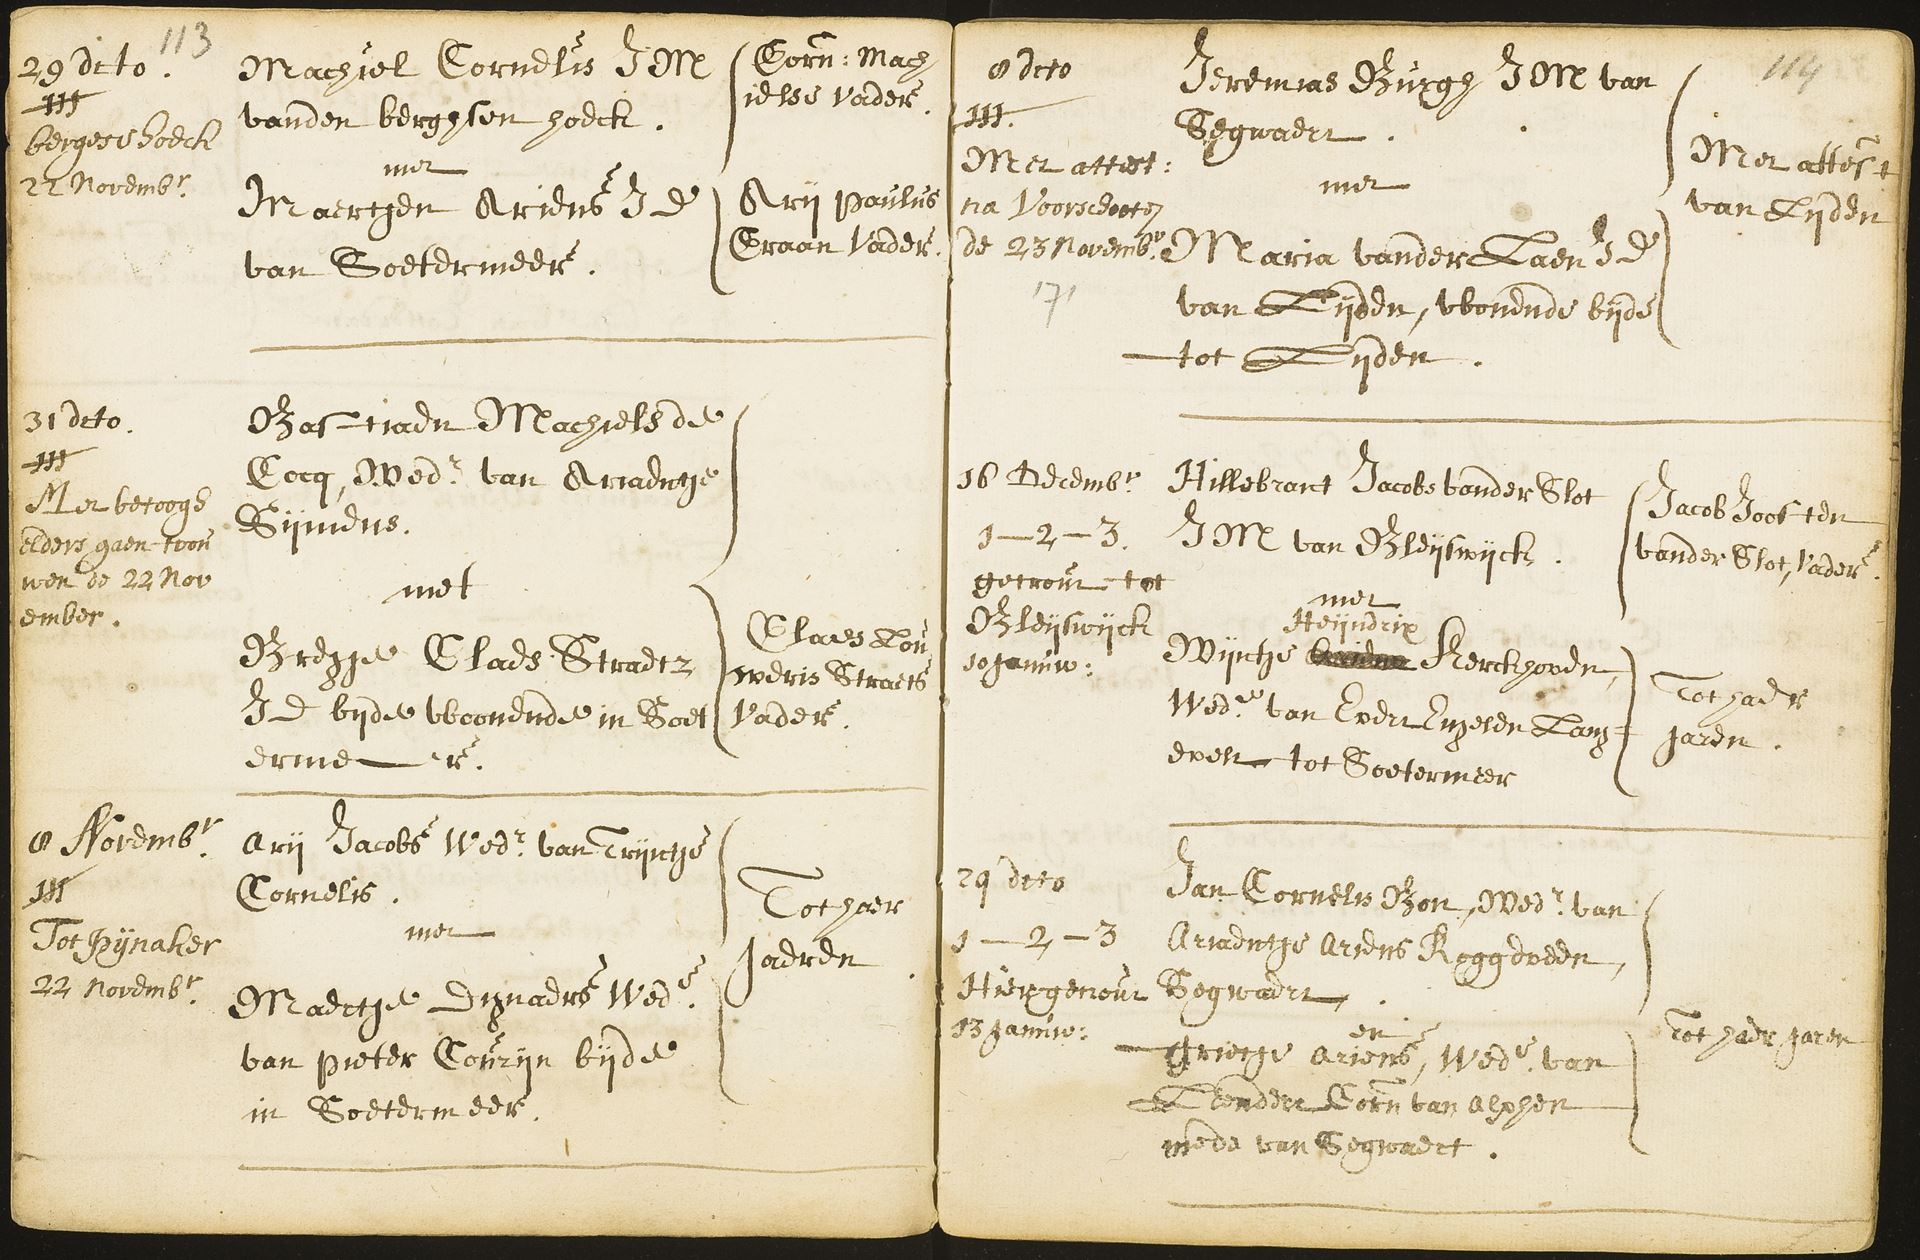 113
29 dcto.
III
bergers hoeck
22 Novembr.
Machiel Cornelis J M
vanden berghsen hoeck.
met
Maertgen Ariens J D
van Soetermeer.
Corn: Mach
ielse Vader.
Arij paulus
Craan Vader.
31 dcto.
III
Met betoogh
elders gaen trou
wen de 22 Nov
ember.
Bastiaen Machiels de
Cocq, Wedr. van Ariaentje
Sijmens.
met
Claes Straetz
J D bijde woonende in Soet
ermeer.
Claes Lou
weris Straets
Vader.
8 Novembr.
III
Tot Pijnaker
22 Novembr.
Arij Jacobs Wedr. van Trijntje
Cornelis.
met
Maertje Wede.
van pieter Courijn bijde
in Soetermeer.
Tot haer
jaeren
114
8 dcto
III.
Met attest:
na Voorschooten
de 23 Novembr.
171
Jeremias Burgh J M van
Segwaert.
met
Maria vander Laen J D
van Lijden, wonende bijde
tot Lijden.
Met attest
van Lijden
16 Decembr.
1-2-3.
getrout tot
Bleijswijck
10 januw:
Hillebrant Jacobs vander Slot
J M van Bleijswijck.
met
Heijndrix
Wijntje Kerckhoven,
Wede. van Evert Engelen Lang-
evelt tot Soetermeer
Jacob Joosten
vander Slot, Vader.
Tot haer
jaren.
29 dcto
1-2-3
Hier getrout
13 januw:
Jan Cornelis Bon, Wedr. van
Ariaentje Ariens Roggeveen,
Segwaert.
en
grietje Ariens, Wede. van
Leendert Corn van Alphen
mede van Segwaert.
Tot haer jaren